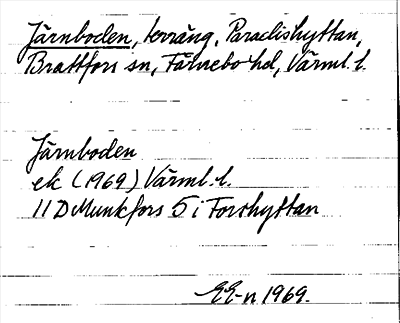 Järnboden, terräng, Paradishyttan,
Brattfors sn, Färnebo hd, Värml. l.
Järnboden
ek (1969) Värml. l.
11D Munkfors 5 i Forshyttan
EE-n 1969.